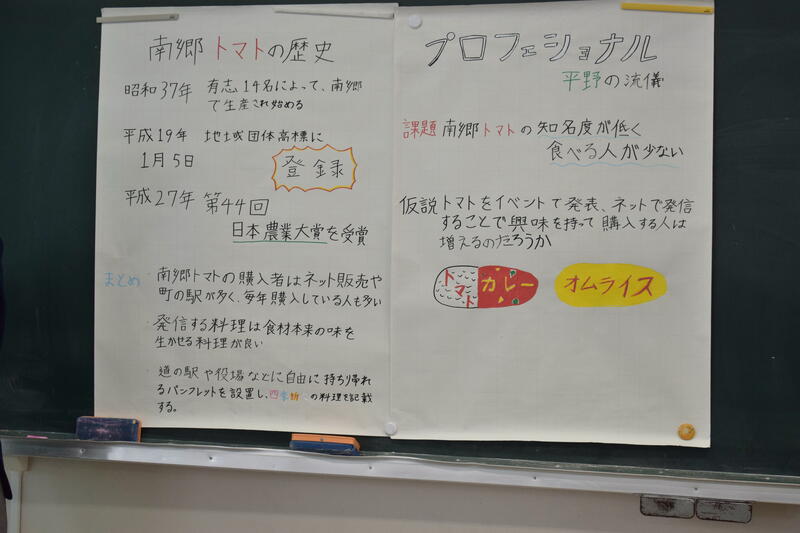 南郷トマトの歴史
昭和37年 有志14名によって、南郷
で生産され始める
平成19年 地域団体商標に
1月5日 登録
平成27年 第44回
日本農業大賞を受賞
まとめ ・南郷トマトの購入者はネット販売や
町の駅が多く、毎年購入している人も多い
・発信する料理は食材本来の味を
生かせる料理が良い
・道の駅や役場などに自由に持ち帰れ
るパンフレットを設置し、四季折々の料理を記載
する。
プロフェショナル
平野の流儀
課題 南郷トマトの知名度が低く
食べる人が少ない
仮説 トマトをイベントで発表、ネットで発信
することで興味を持って購入する人は
増えるのだろうか
トマト カレー オムライス